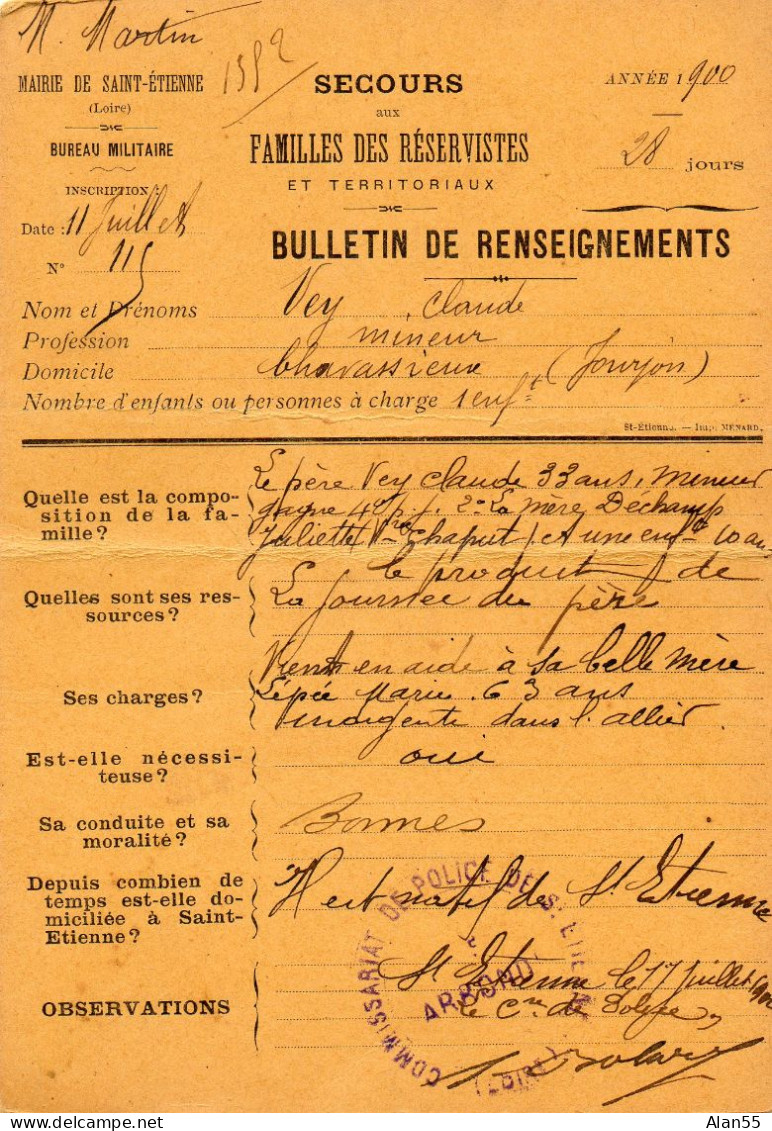 M. Martin
1592
MAIRIE DE SAINT-ÉTIENNE
(Loire)
BUREAU MILITAIRE
INSCRIPTION:
Date : 11 Juillet
N° 115
SECOURS
aux
FAMILLES DES RÉSERVISTES
ET TERRITORIAUX
BULLETIN DE RENSEIGNEMENTS
ANNÉE 1900
28 jours
Nom et Prénoms Vey Claude
Profession mineur
Domicile Chavassieux
Nombre d'enfants ou personnes à charge 1 enft
St-Étienne. — Imp. MÉNARD.
Quelle est la compo-
sition de la fa-
mille?
Le père Vey Claude 33 ans, mineur
gagne 4f p. j. 2° La Mère Déchamp
Juliette (Vve Chaput) et une enft 10 ans
Quelles sont ses res-
sources?
le produit de
La Journée du père
Ses charges?
Vient en aide à sa belle mère
Lépée Marie 63 ans
indigente dans l'allier
Est-elle nécessi-
teuse?
oui
Sa conduite et sa
moralité?
Bonnes
Depuis combien de
temps est-elle do-
miciliée à Saint-
Etienne?
Il est natif de St Etienne
OBSERVATIONS
St Etienne le 17 Juillet 1900
le Cre de Police
COMMISSARIAT DE POLICE DE St ETIENNE
(LOIRE)
Alan55